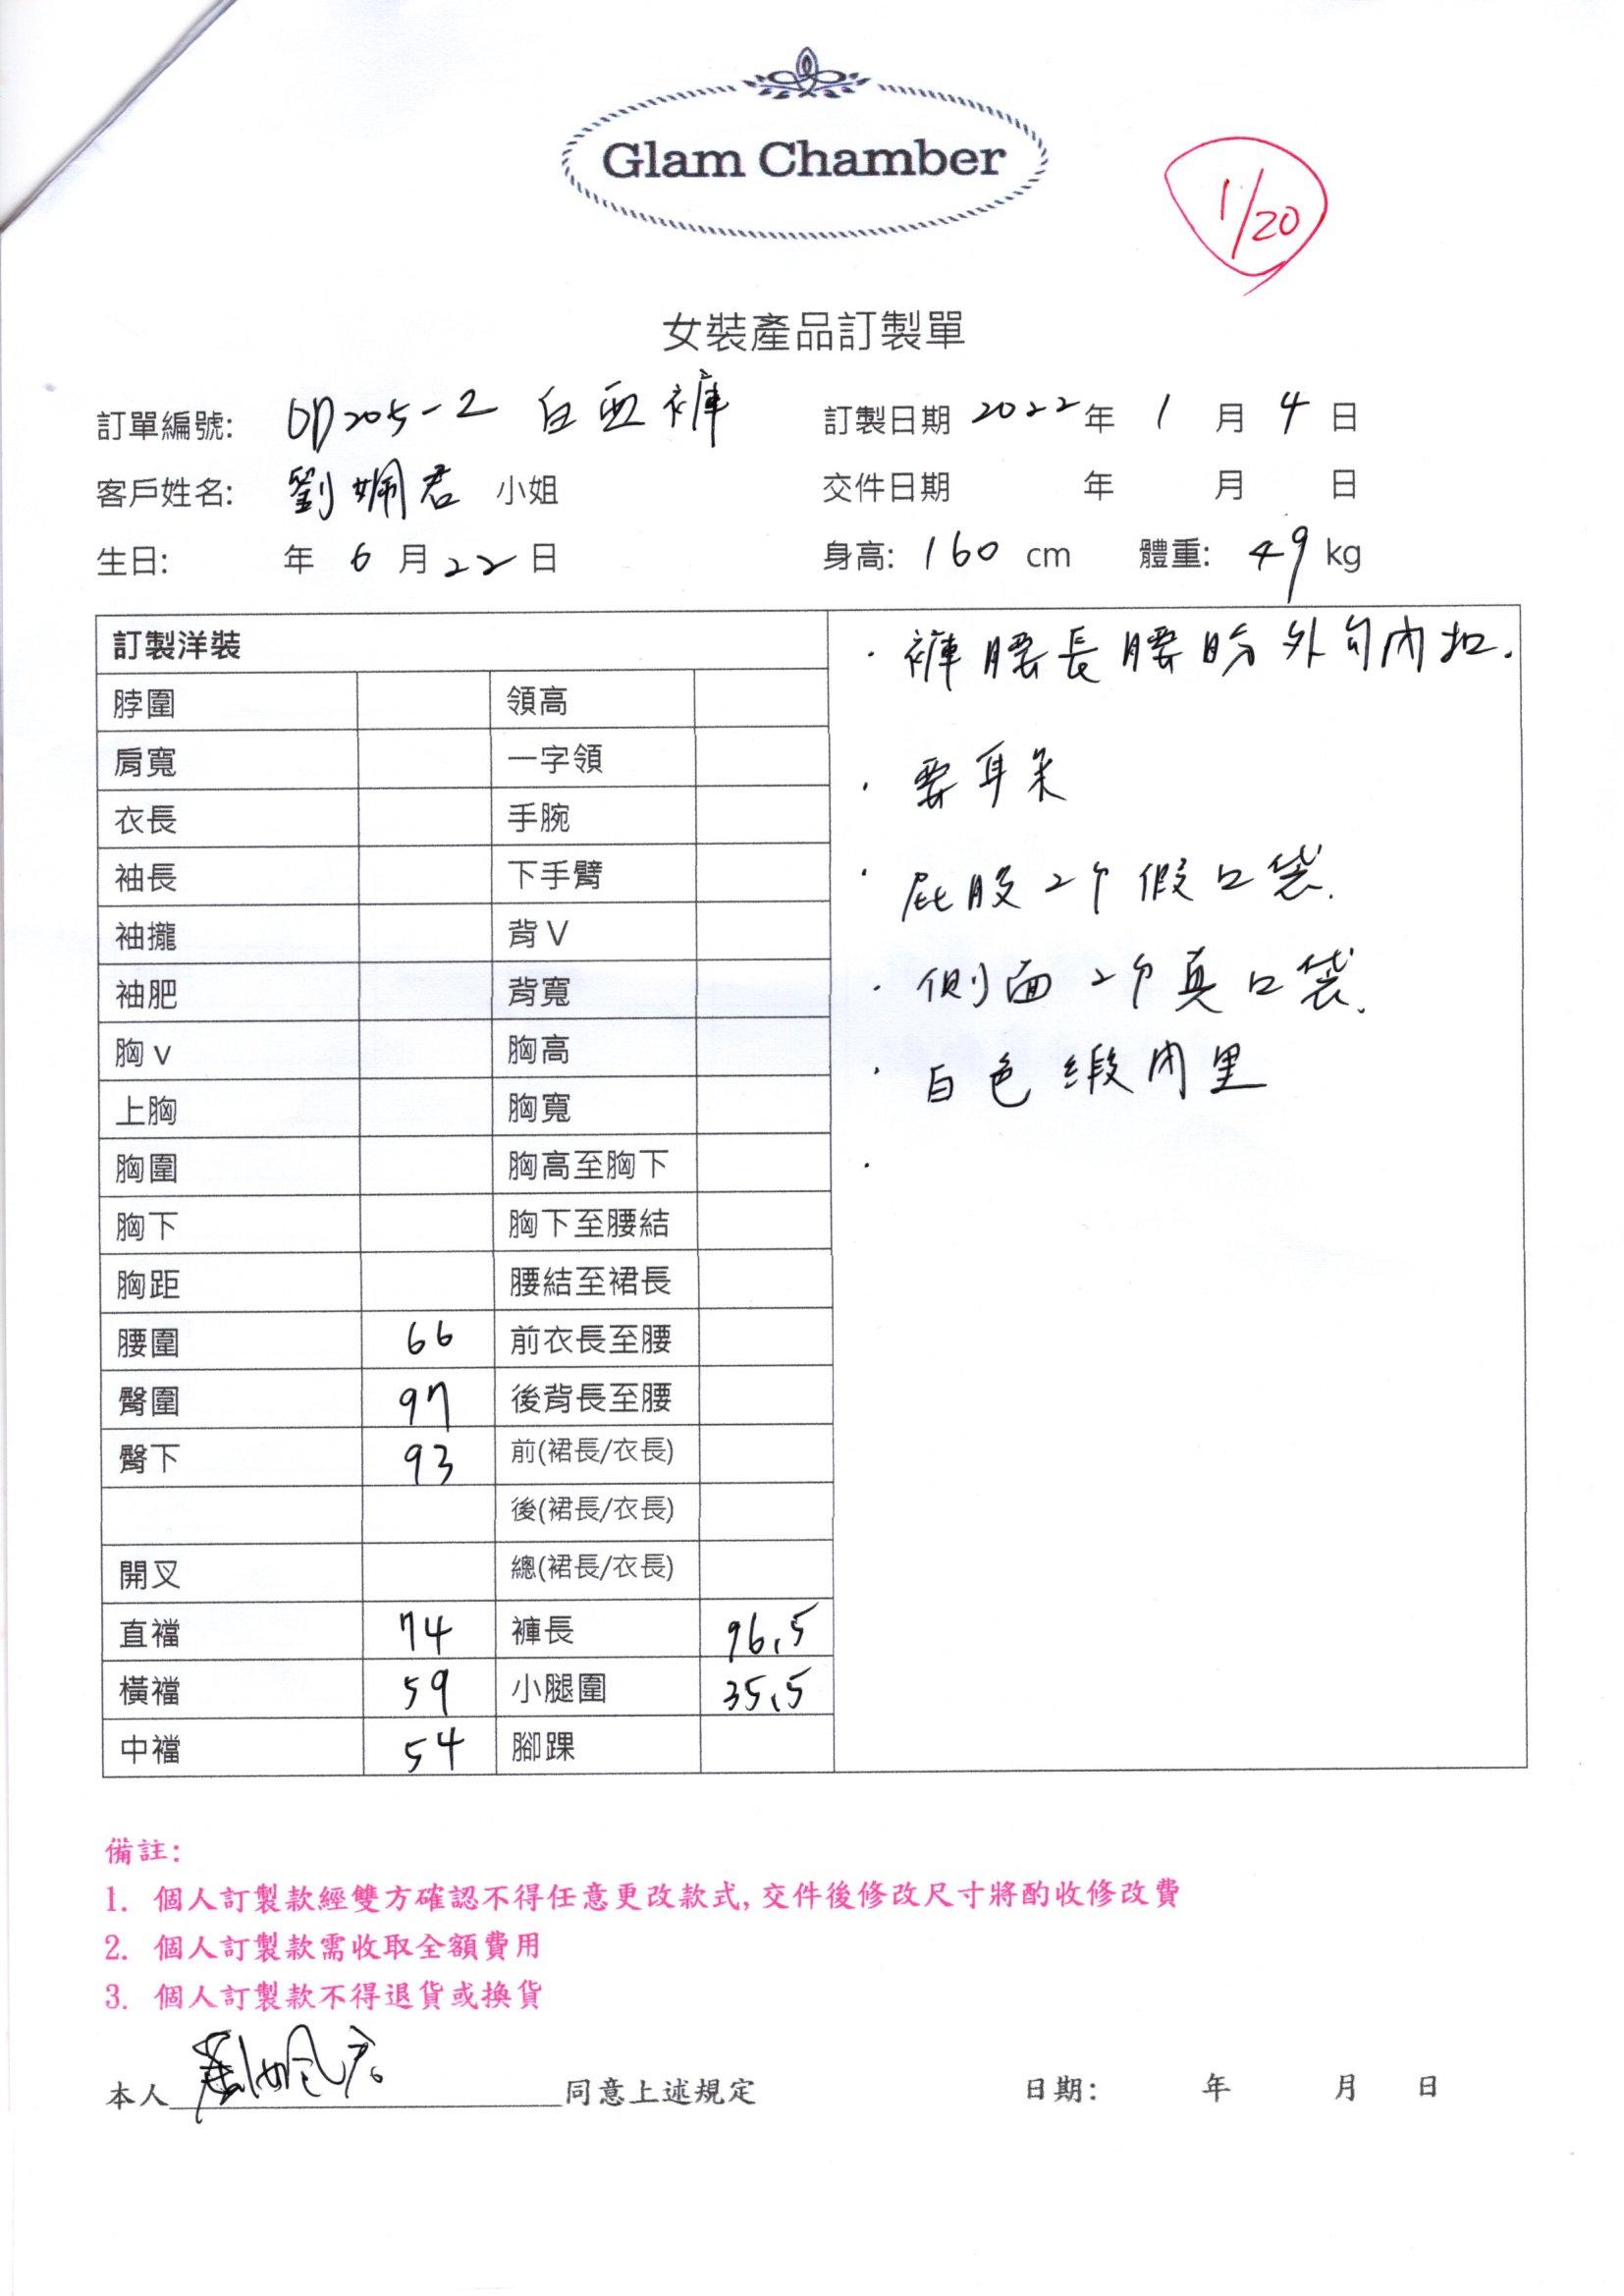 Glam Chamber
1/20
女裝產品訂製單
訂單編號: OD205-2 白西褲 訂製日期 2022 年 1 月 4 日
客戶姓名: 劉姵君 小姐 交件日期 年 月 日
生日: 年 6 月 22 日 身高: 160 cm 體重: 49 kg
訂製洋裝
脖圍 領高
肩寬 一字領
衣長 手腕
袖長 下手臂
袖攏 背V
袖肥 背寬
胸v 胸高
上胸 胸寬
胸圍 胸高至胸下
胸下 胸下至腰結
胸距 腰結至裙長
腰圍 66 前衣長至腰
臀圍 97 後背長至腰
臀下 93 前(裙長/衣長)
後(裙長/衣長)
開叉 總(裙長/衣長)
直襠 74 褲長 96.5
橫襠 59 小腿圍 35.5
中襠 54 腳踝
· 褲腰長腰 外勾內扣.
· 要耳朵
· 屁股2个假口袋.
· 側面2个真口袋.
· 白色緞內里
·
備註:
1. 個人訂製款經雙方確認不得任意更改款式, 交件後修改尺寸將酌收修改費
2. 個人訂製款需收取全額費用
3. 個人訂製款不得退貨或換貨
本人 劉姵君 同意上述規定 日期: 年 月 日